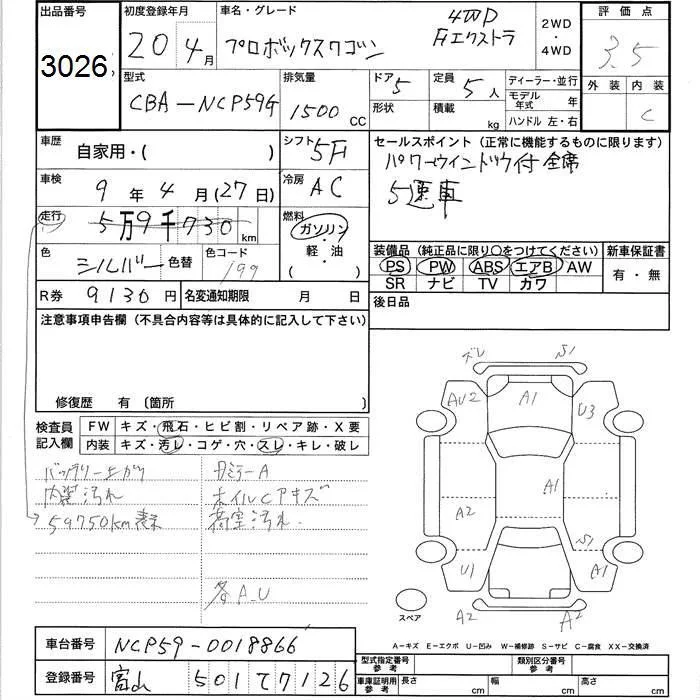 出品番号 初度登録年月 車名・グレード 評価点
3026 20 4月 プロボックスワゴン 4WD Fエクストラ 2WD・4WD 3.5
型式 排気量 ドア 5 定員 5人 ディーラー・並行 外装 内装
CBA-NCP59G 1500CC 形状 積載 kg モデル年式 年 C
ハンドル 左・右
車歴 自家用・( ) シフト 5F セールスポイント (正常に機能するものに限ります)
パワーウインドウ付 全席
車検 9年4月(27日) 冷房 AC 5速車
走行 5万9千730km 燃料 ガソリン・軽・油 ( )
装備品 (純正品に限り○をつけてください) 新車保証書
色 シルバー 色替 色コード 199 PS PW ABS エアB AW 有・無
SR ナビ TV カワ
R券 9130円 名変通知期限 月 日 後日品
注意事項申告欄 (不具合内容等は具体的に記入して下さい)
修復歴 有 〔箇所 〕
検査員記入欄 FW キズ・飛石・ヒビ割・リペア跡・X要
内装 キズ・汚レ・コゲ・穴・スレ・キレ・破レ
バッテリー上がり ミラーA
内装汚れ ホイルCアキズ
59750km表示 荷室汚れ
各A.U
ズレ S1
AU2 A1 U3
A1
A2
S1
U1 A1
スペア A2 A2
A-キズ E-エクボ U-凹み W-補修跡 S-サビ C-腐食 XX-交換済
車台番号 NCP59-0018866 型式指定番号 参考 類別区分番号 参考
登録番号 富山 501 T 7126 車庫証明用 参考 長さ cm 幅 cm 高さ cm